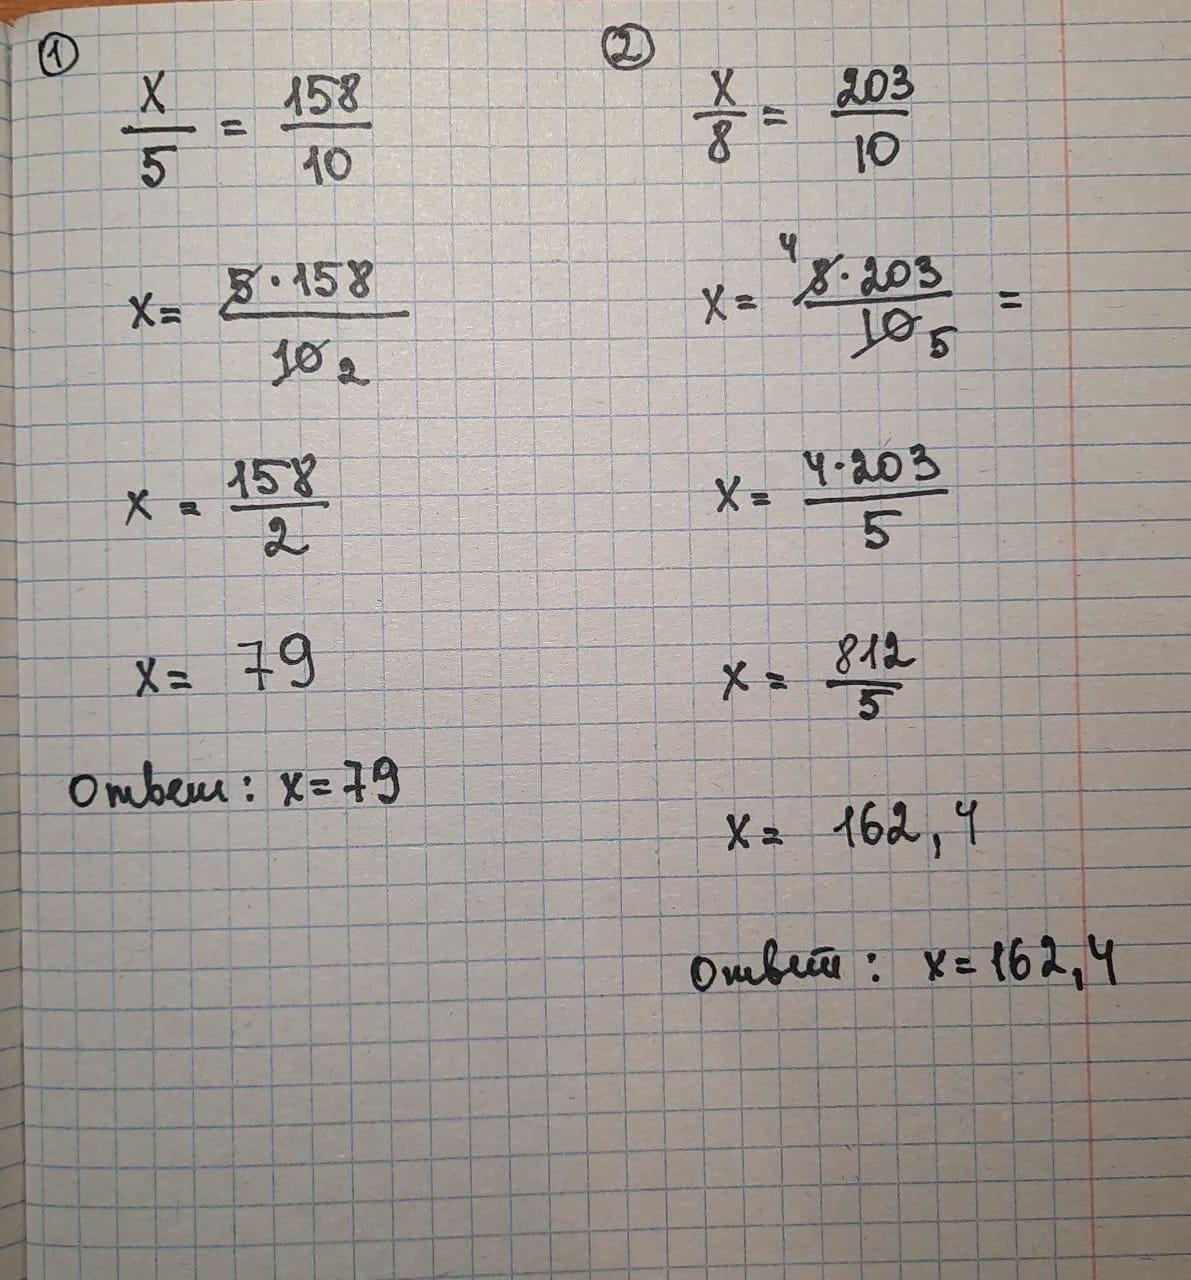 ①
x/5 = 158/10
x = 5·158/10 2
x = 158/2
x = 79
Ответ: x = 79
②
x/8 = 203/10
x = 4 8·203/10 5 =
x = 4·203/5
x = 812/5
x = 162,4
Ответ: x = 162,4